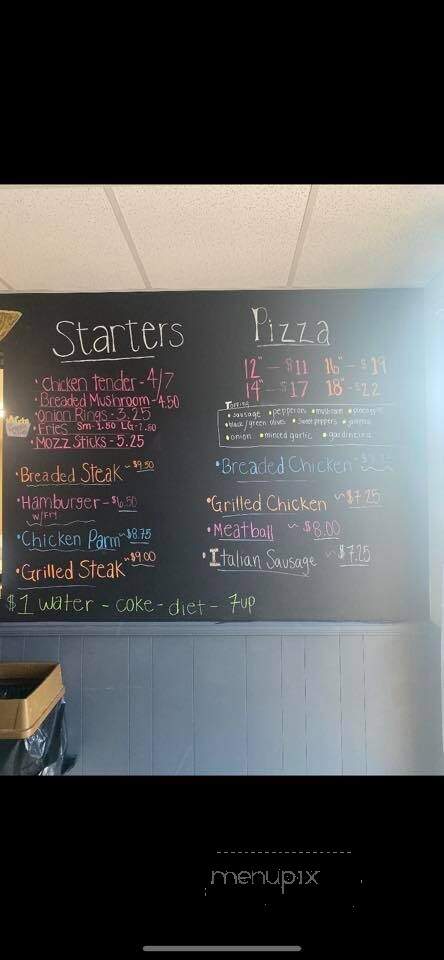 Starters
• Chicken tender - 4/7
• Breaded Mushroom - 4.50
• Onion Rings - 3.25
• Fries Sm - 1.50 LG - 2.50
• Mozz Sticks - 5.25
• Breaded Steak ~ $9.50
• Hamburger ~ $6.50
w/Fry
• Chicken Parm ~ $8.75
• Grilled Steak ~ $9.00
Pizza
12" - $11 16" - $19
14" - $17 18" - $22
Topping
• sausage • pepperoni • mushroom • pineapple
• black/green olives • sweet peppers
• onion • minced garlic • giardiniera
• Breaded Chicken
• Grilled Chicken ~ $7.25
• Meatball ~ $8.00
• Italian Sausage ~ $7.25
$1 water - coke - diet - 7up
menupix